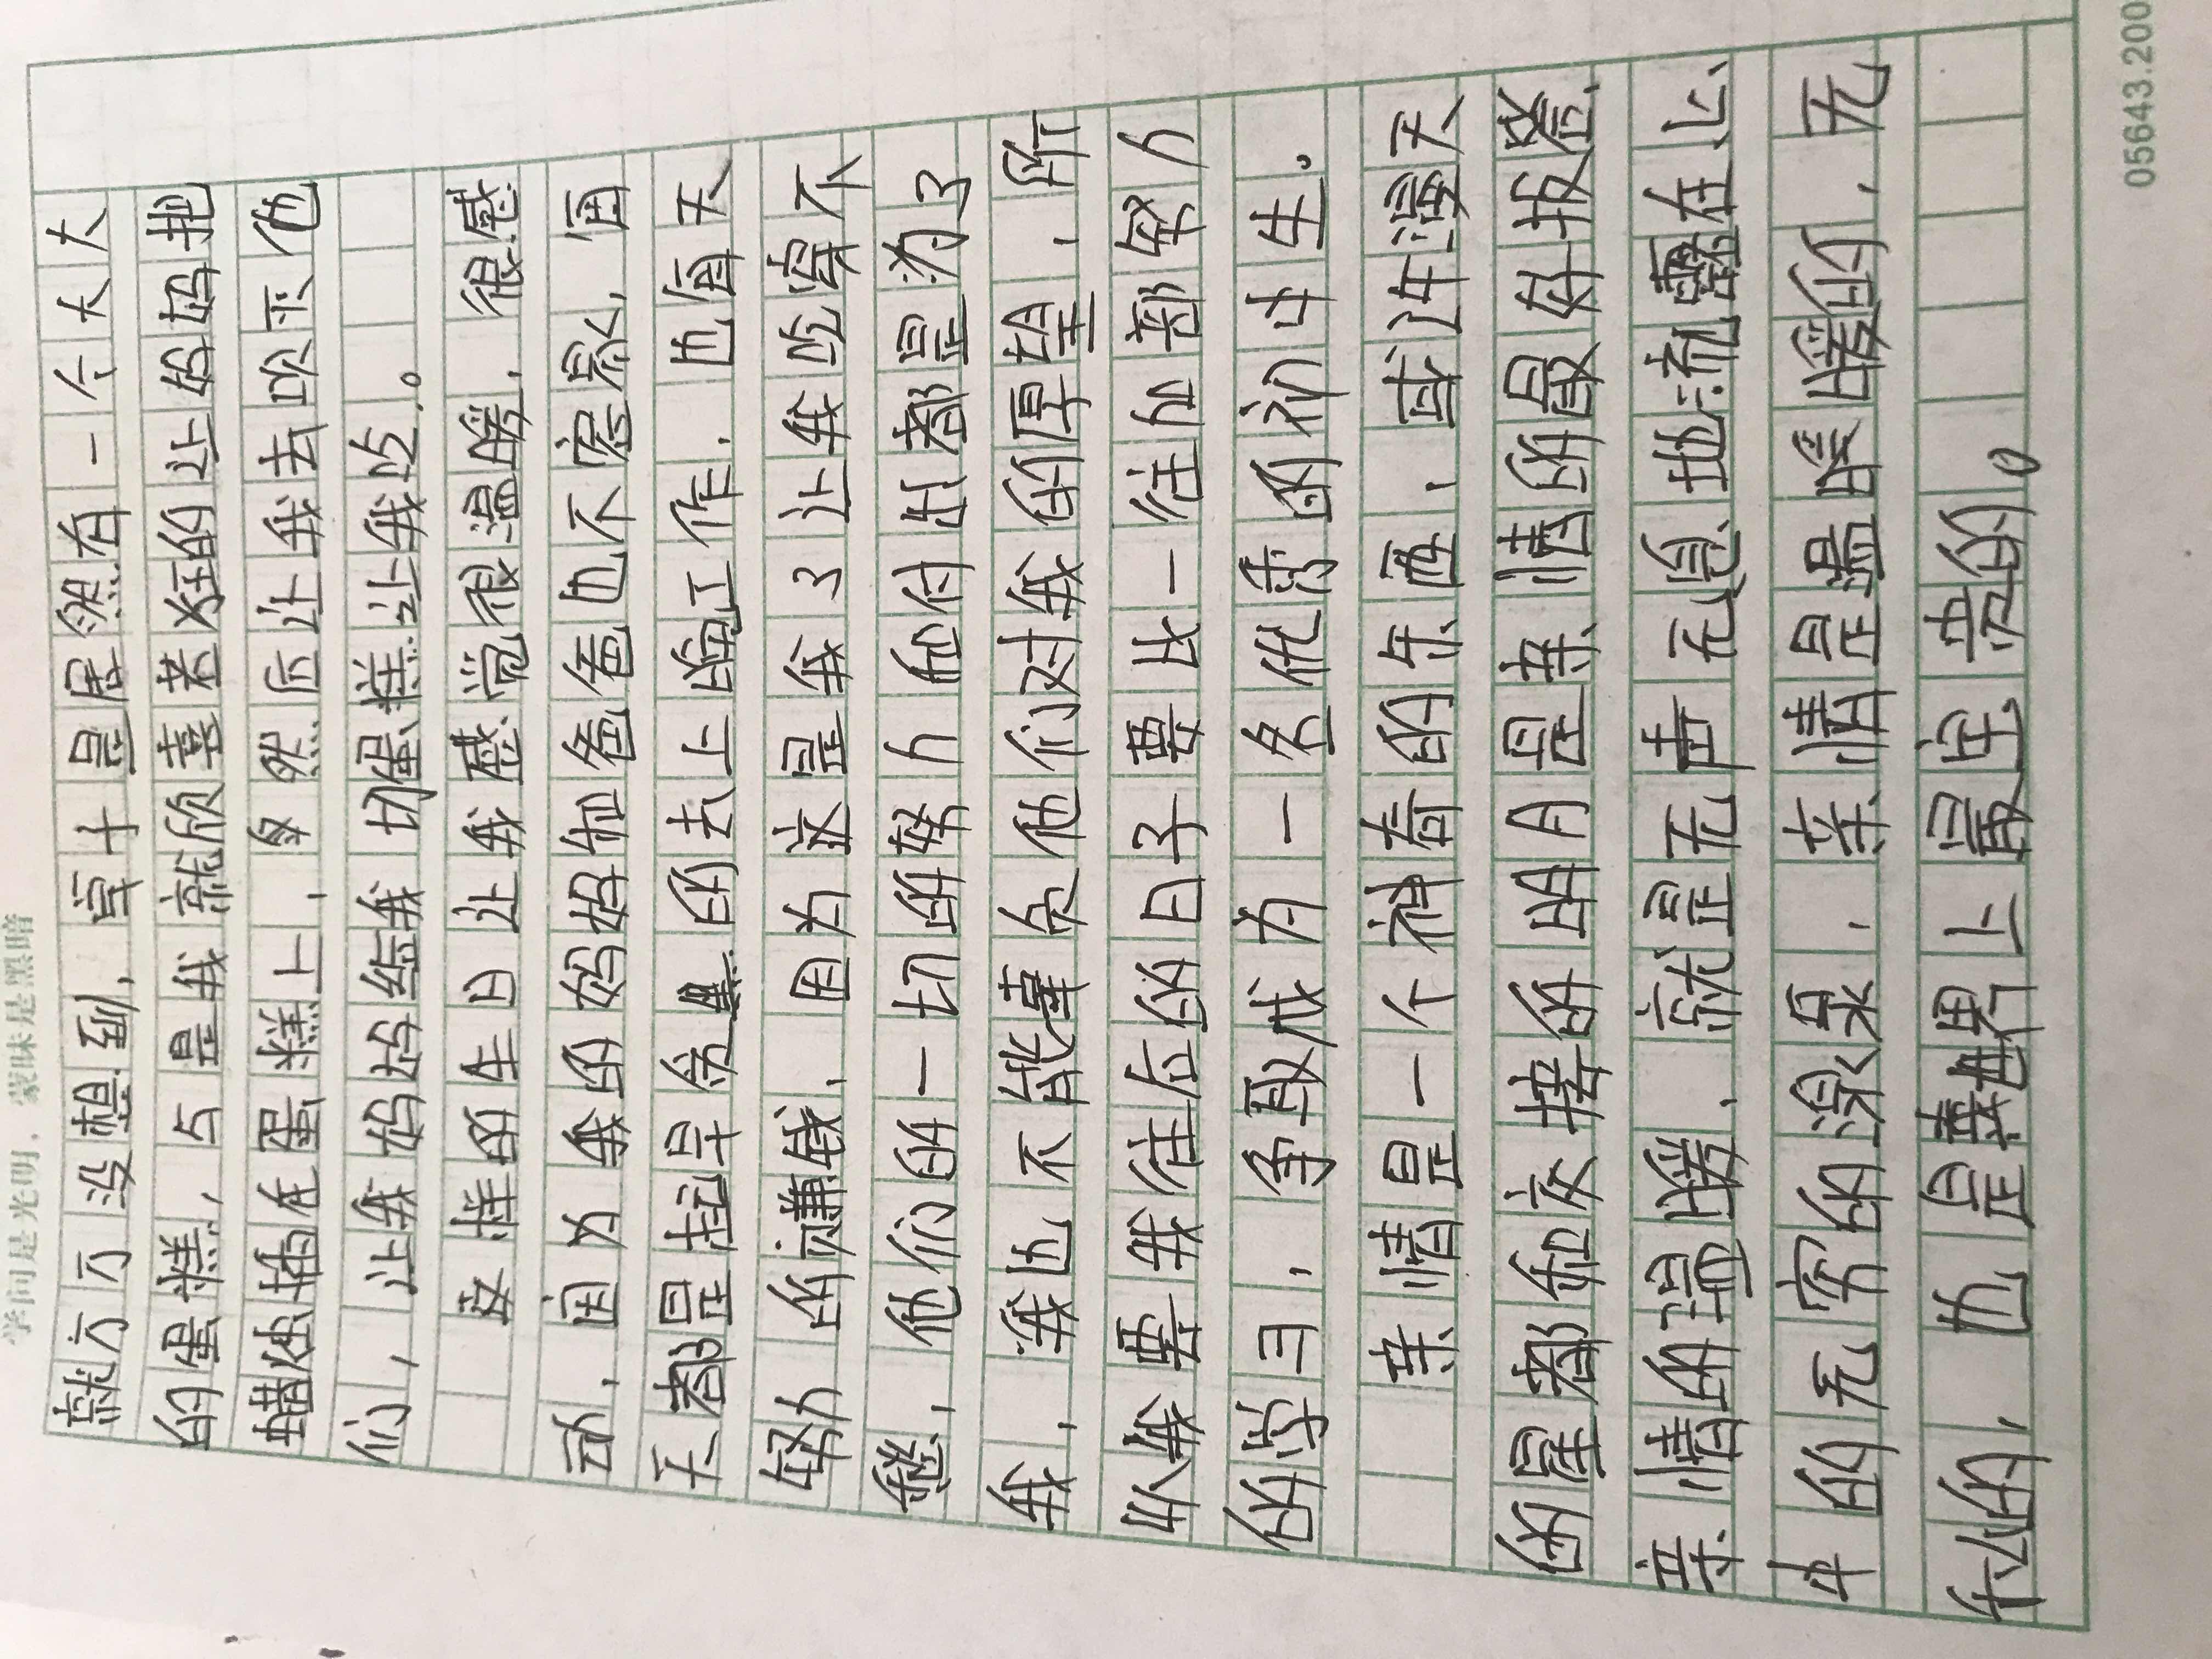 学问是光明，蒙昧是黑暗
就方方没想到，桌子是居然有一个大大
的蛋糕，与是我就欣喜若狂的让妈妈把
蜡烛插在蛋糕上，然后让我去叫来他
们，让我妈妈给我切蛋糕让我吃。
这样的生日让我感觉很温暖，很感
动，因为我的妈妈和爸爸也不容易，每
天都是起早贪黑的去上晚工作，也每天
努力的赚钱，因为这是我了让我吃穿不
愁，他们的一切的努力和付出都是为了
我，我也不能辜负他们对我的厚望，所
以我要我往后的日子要比一往加部努力
的学习，争取成为一名优秀的初中生。
亲情是一个神奇的东西，或许漫天
的星都和交接的明月是亲情的最好报答，
亲情的温暖，就是无声无息地流露在心
中的无穷的源泉，亲情是温暖暖的，无
私的，也是世界上最宝贵的。
05643.200